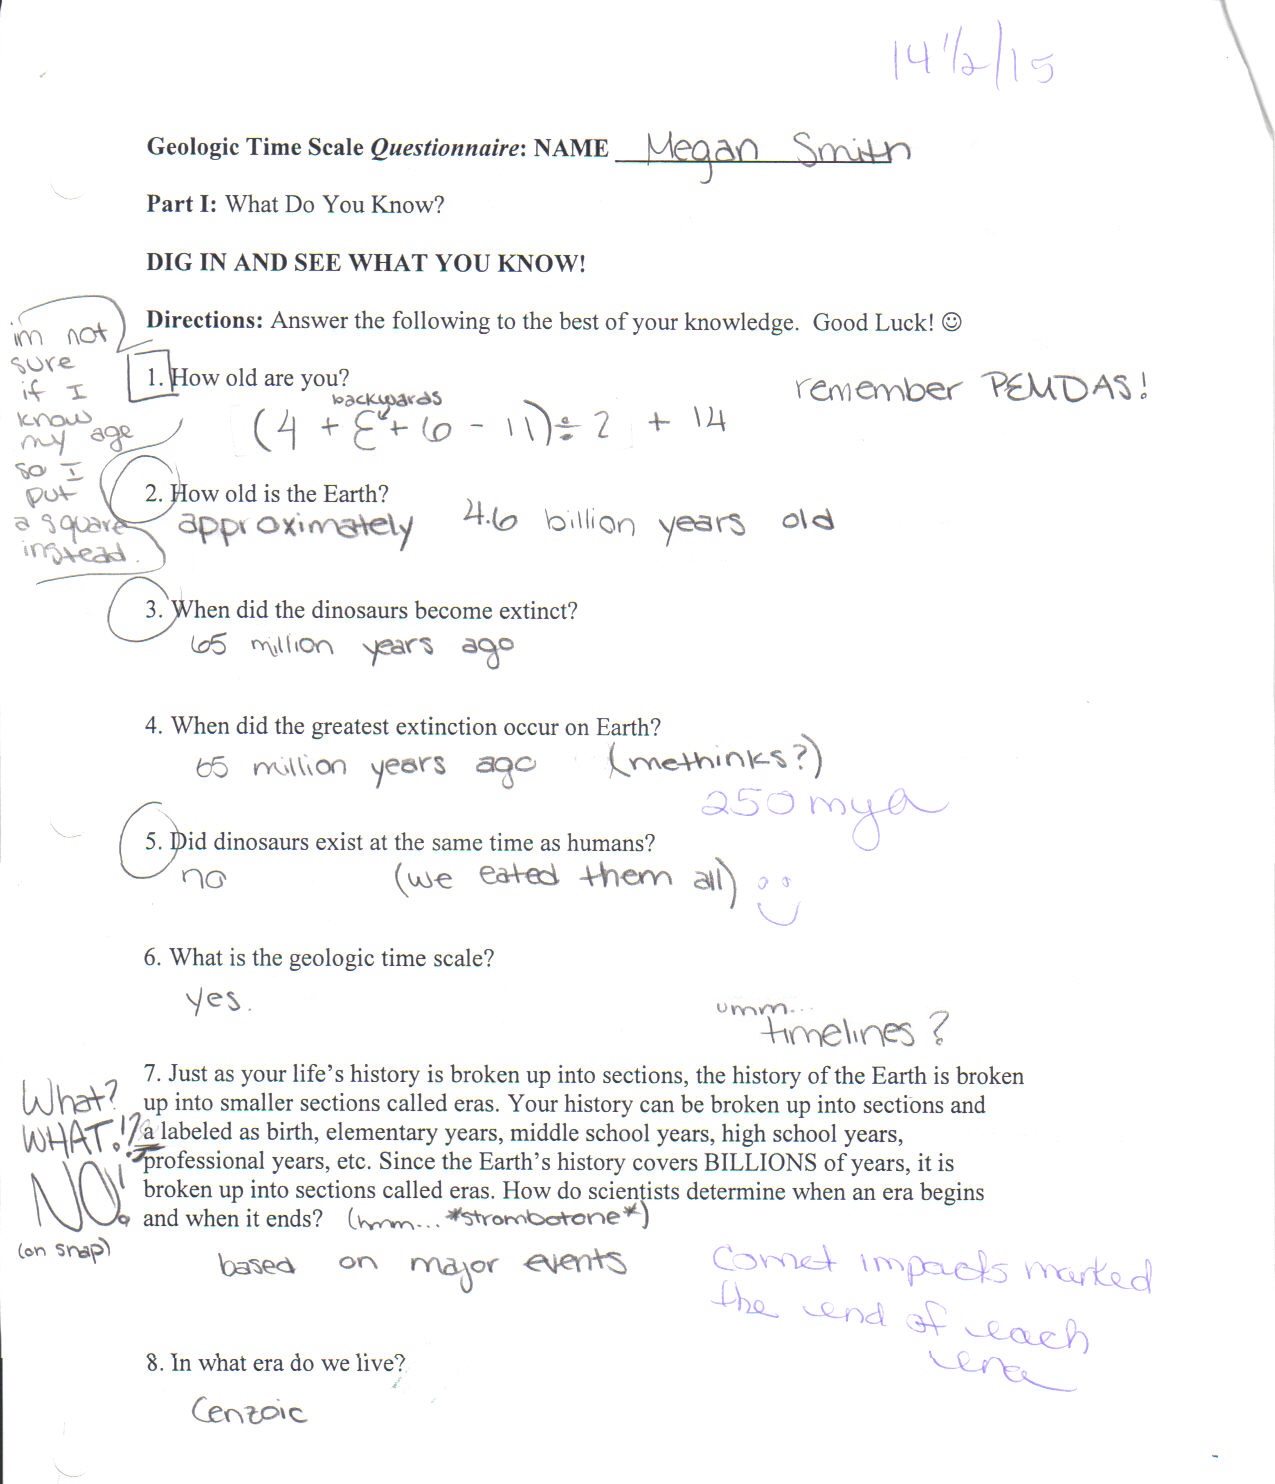 14 1/2/15
Geologic Time Scale Questionnaire: NAME Megan Smith
Part I: What Do You Know?
DIG IN AND SEE WHAT YOU KNOW!
Directions: Answer the following to the best of your knowledge. Good Luck! ☺
im not
sure
if I
know
my age
so I
put
a square
instead.
1. How old are you?
remember PEMDAS!
backwards
(4 + Ɛ + 6 - 11) ÷ 2 + 14
2. How old is the Earth?
approximately 4.6 billion years old
3. When did the dinosaurs become extinct?
65 million years ago
4. When did the greatest extinction occur on Earth?
65 million years ago (methinks?)
250 mya
5. Did dinosaurs exist at the same time as humans?
no (we eated them all)
6. What is the geologic time scale?
yes.
umm...
timelines?
What?
WHAT!?
NO!
(on snap)
7. Just as your life's history is broken up into sections, the history of the Earth is broken
up into smaller sections called eras. Your history can be broken up into sections and
a labeled as birth, elementary years, middle school years, high school years,
professional years, etc. Since the Earth's history covers BILLIONS of years, it is
broken up into sections called eras. How do scientists determine when an era begins
and when it ends? (hmm... *strombotone*)
based on major events
Comet impacts marked
the end of each
era
8. In what era do we live?
Cenzoic